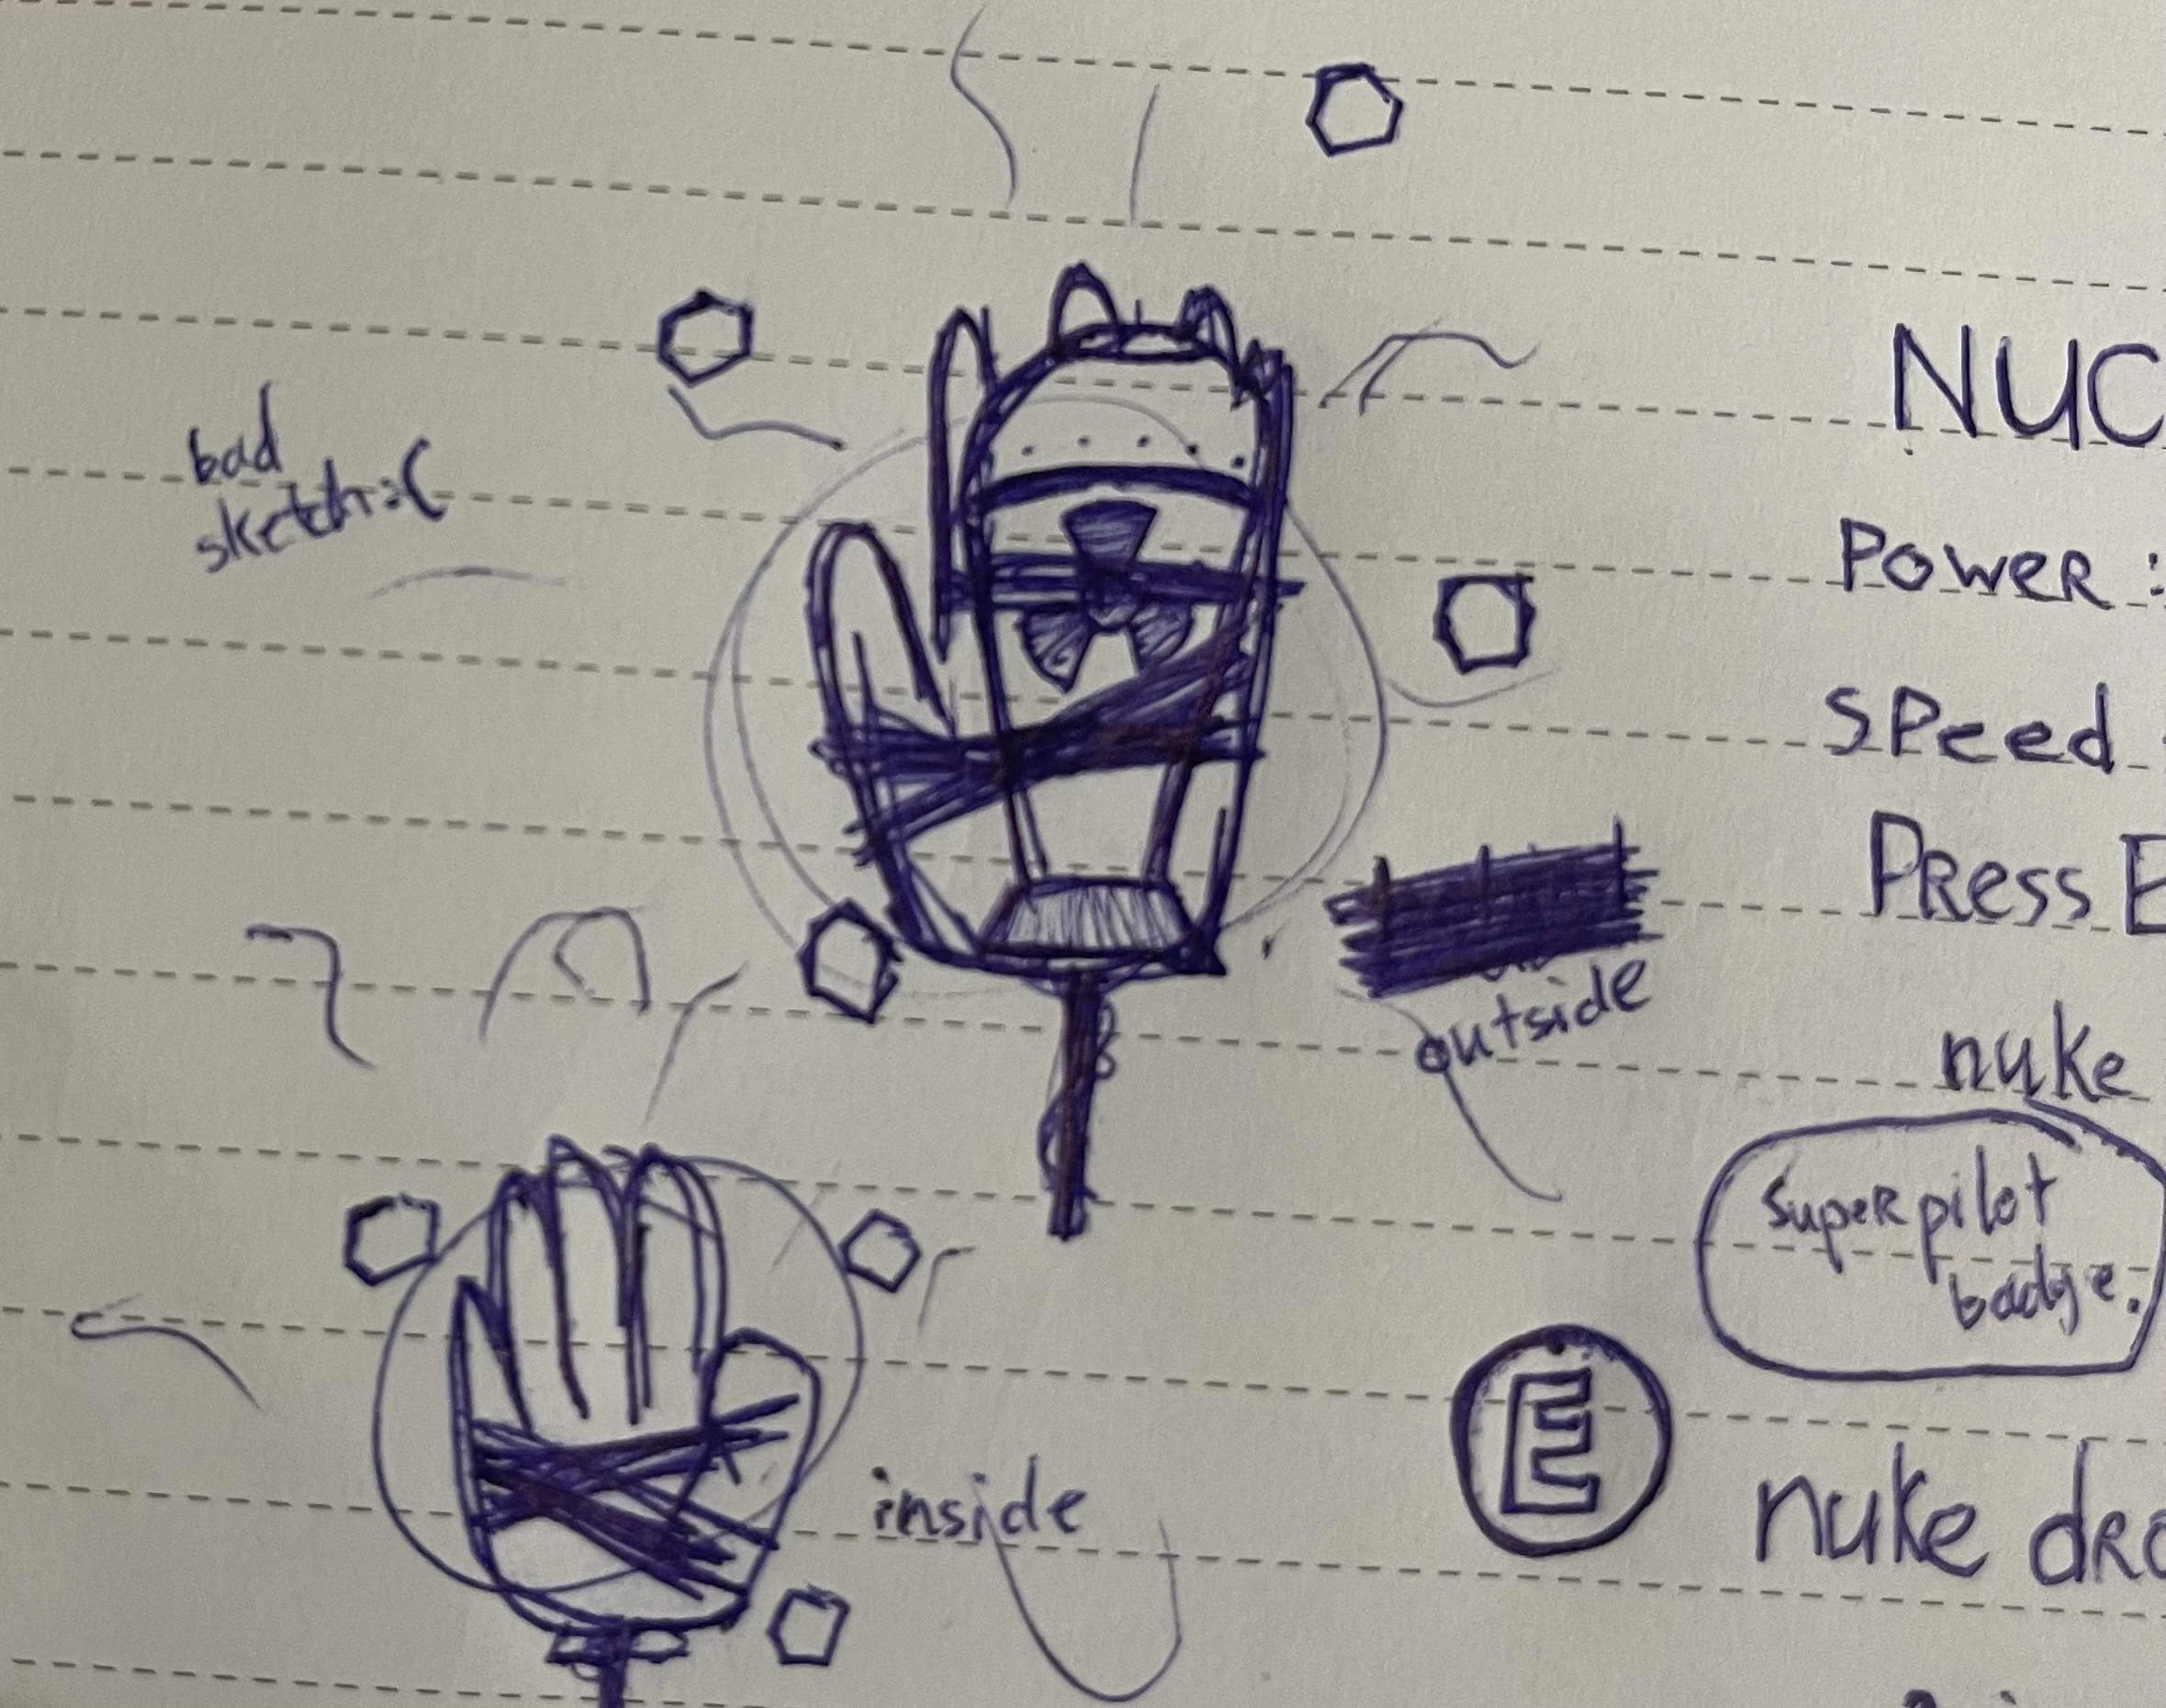 bad
sketch :(
NUC
POWER :
SPeed
PRess E
outside
nuke
superpilot
badge.
E
inside
nuke dRo